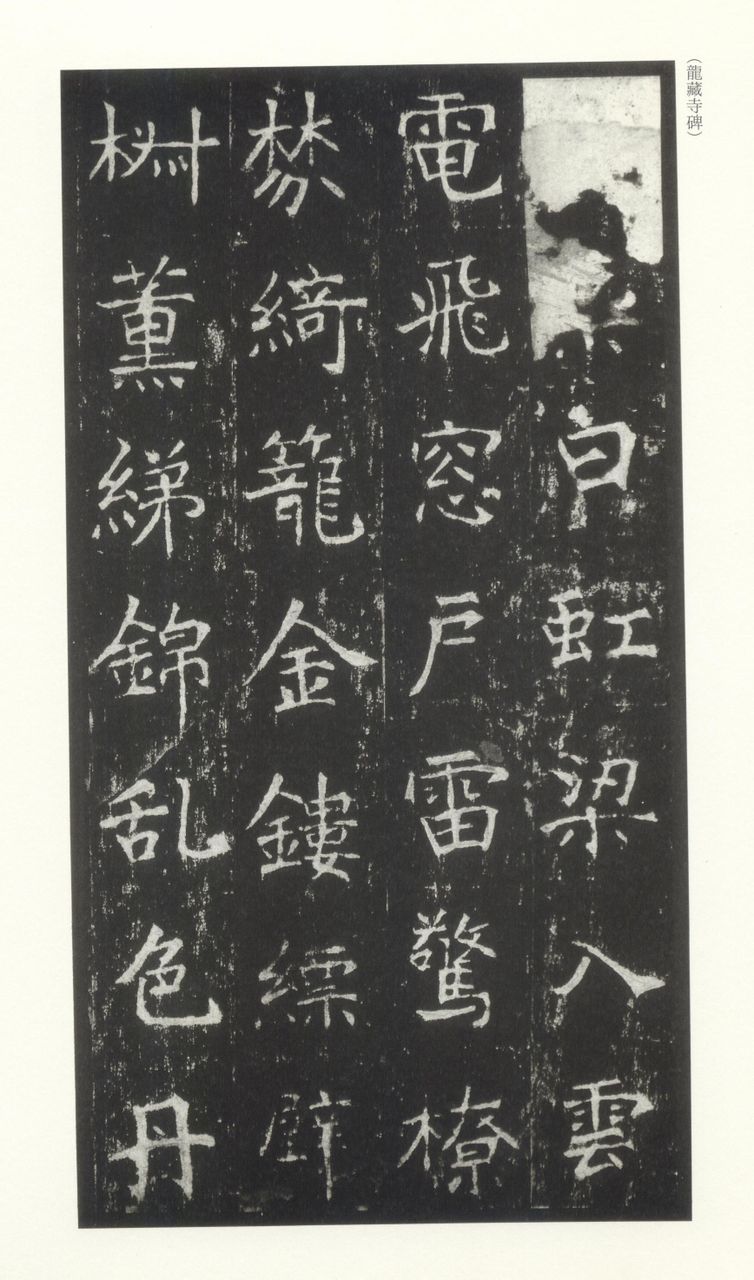 (龍藏寺碑)
白虹梁入雲
電飛窓戶雷驚橑
棼綺籠金鏤縹壁
椒薰綈錦乱色丹